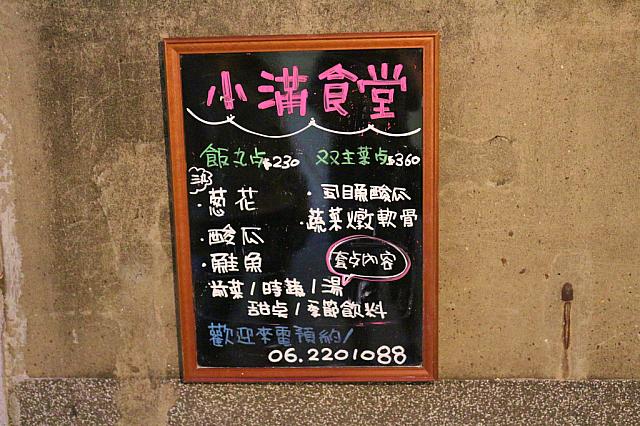 小滿食堂
飯丸点$230 双主菜点$360
三款
・蔥花 ・虱目魚酸瓜
・酸瓜 ・蔬菜燉軟骨
・鮭魚 套点內容
前菜/時蔬/湯
甜点/季節飲料
歡迎來電預約/
06.2201088